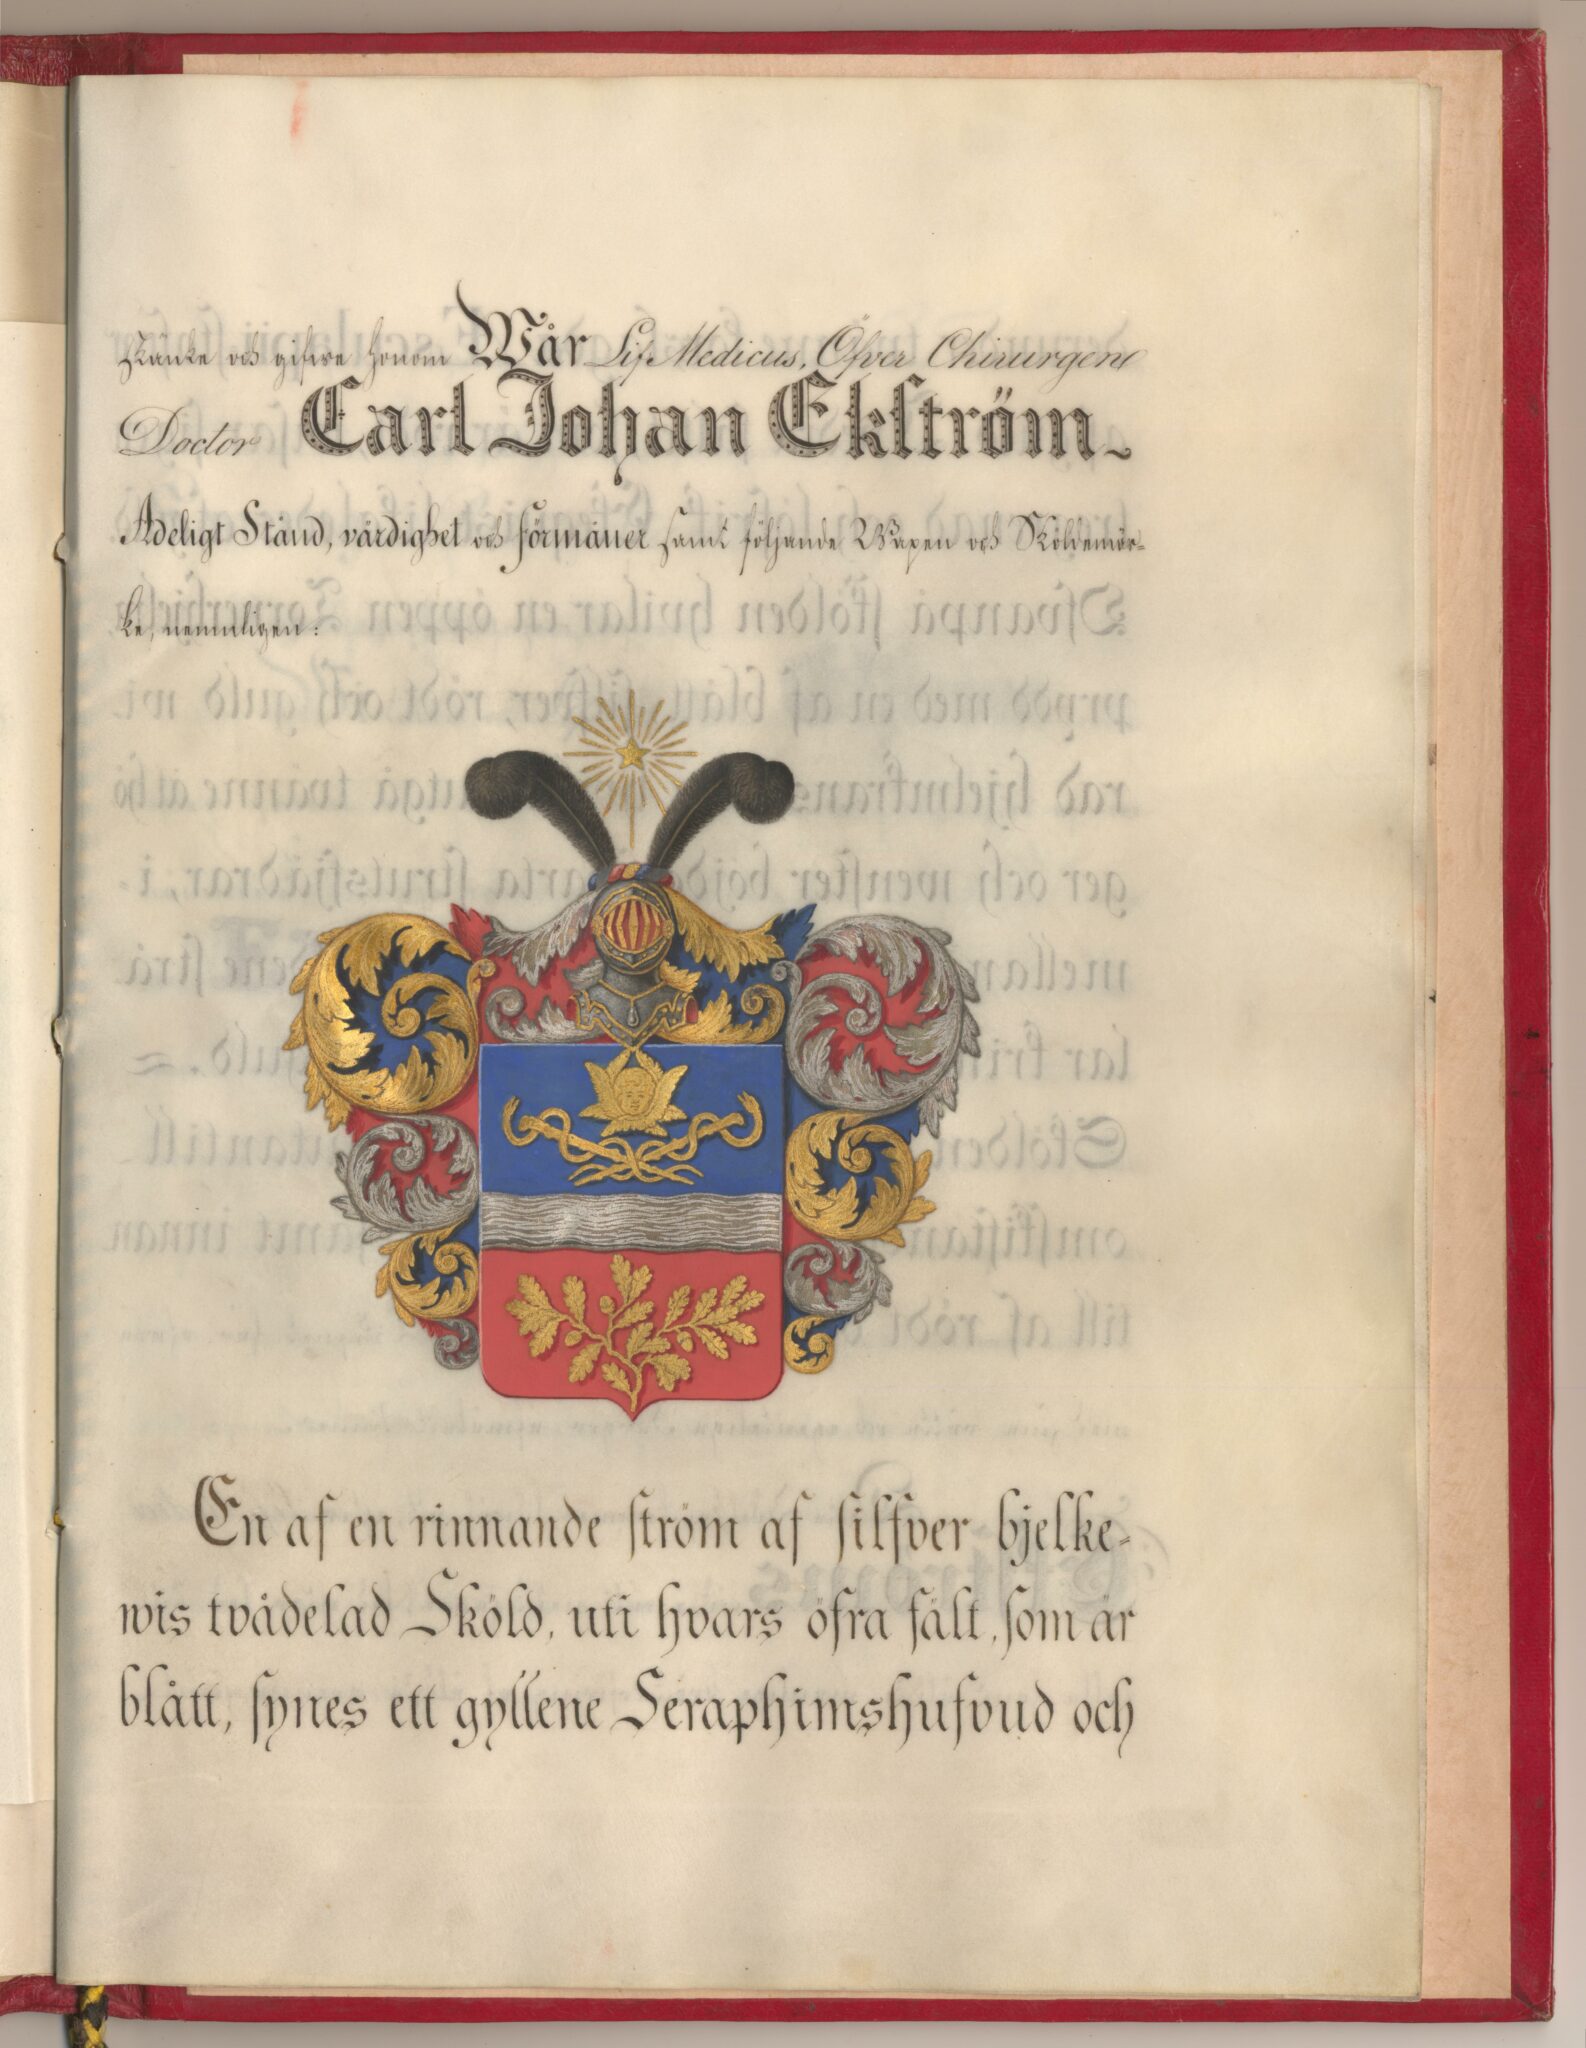 skänke och gifwe honom Wår Lif Medicus, Öfver Chirurgen
Doctor Carl Johan Ekström
Adeligt Stånd, värdighet och förmåner samt följande Wapen och Sköldemär-
ke, nemmligen:
En af en rinnande ström af silfver bjelke-
wis tvådelad Sköld, uti hvars öfra fält, som är
blått, synes ett gyllene Seraphimshufvud och